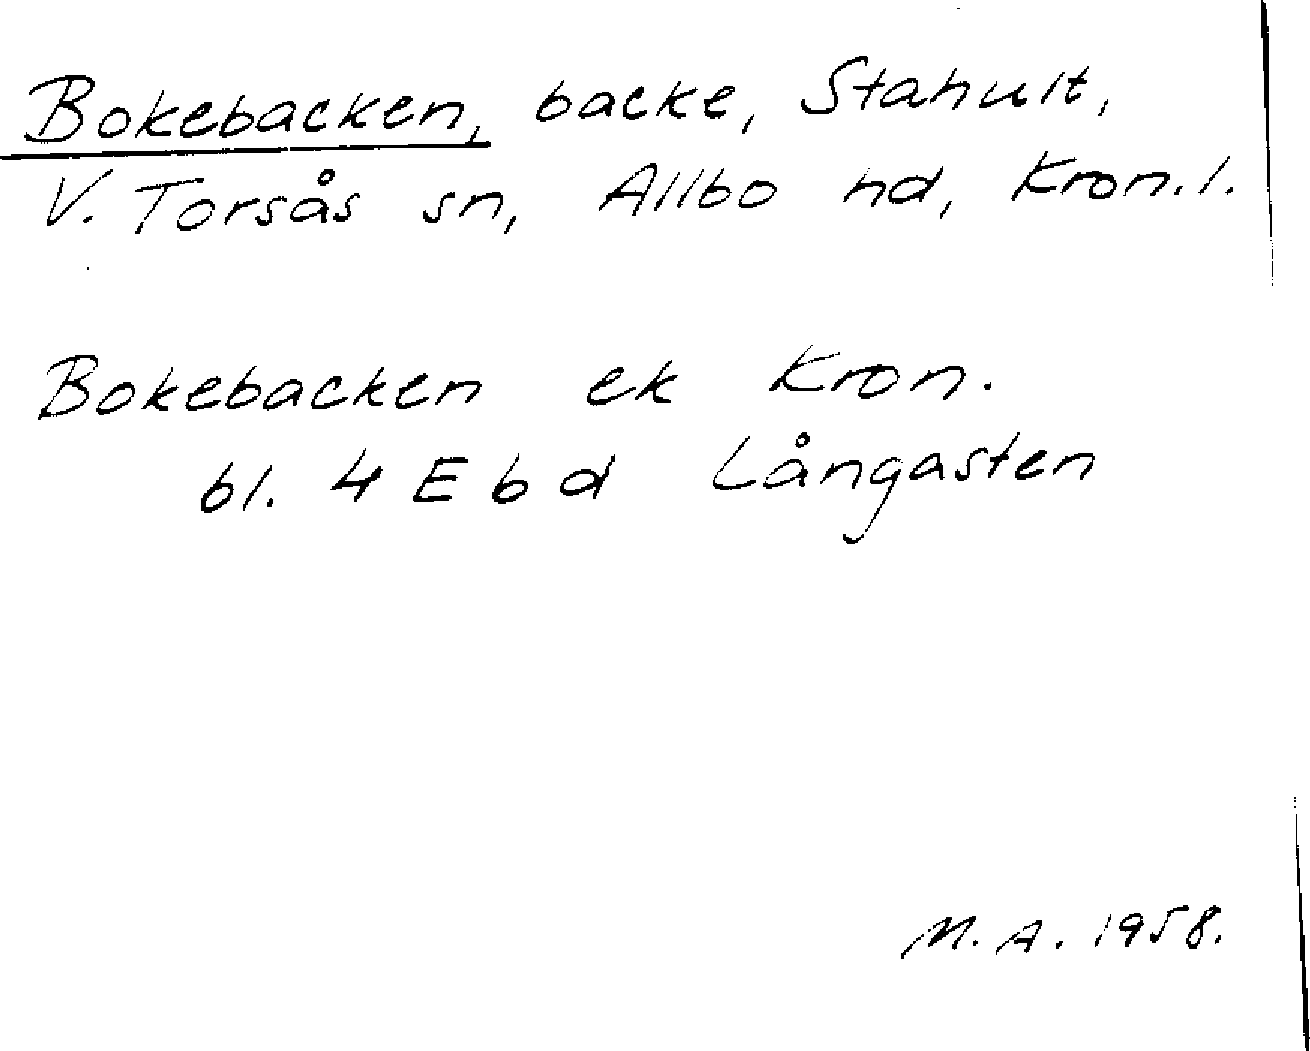 Bokebacken, backe, Stahult,
V. Torsås sn, Allbo hd, Kron.l.
Bokebacken ek Kron.
bl. 4 E b d Långasten
M.A. 1958.